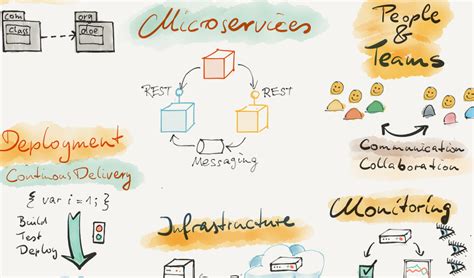 com
class
org
doe
Microservices
REST
REST
Messaging
People
&
Teams
Communication
Collaboration
Deployment
Continous Delivery
{ var i = 1; }
Build
Test
Deploy
Infrastructure
Monitoring